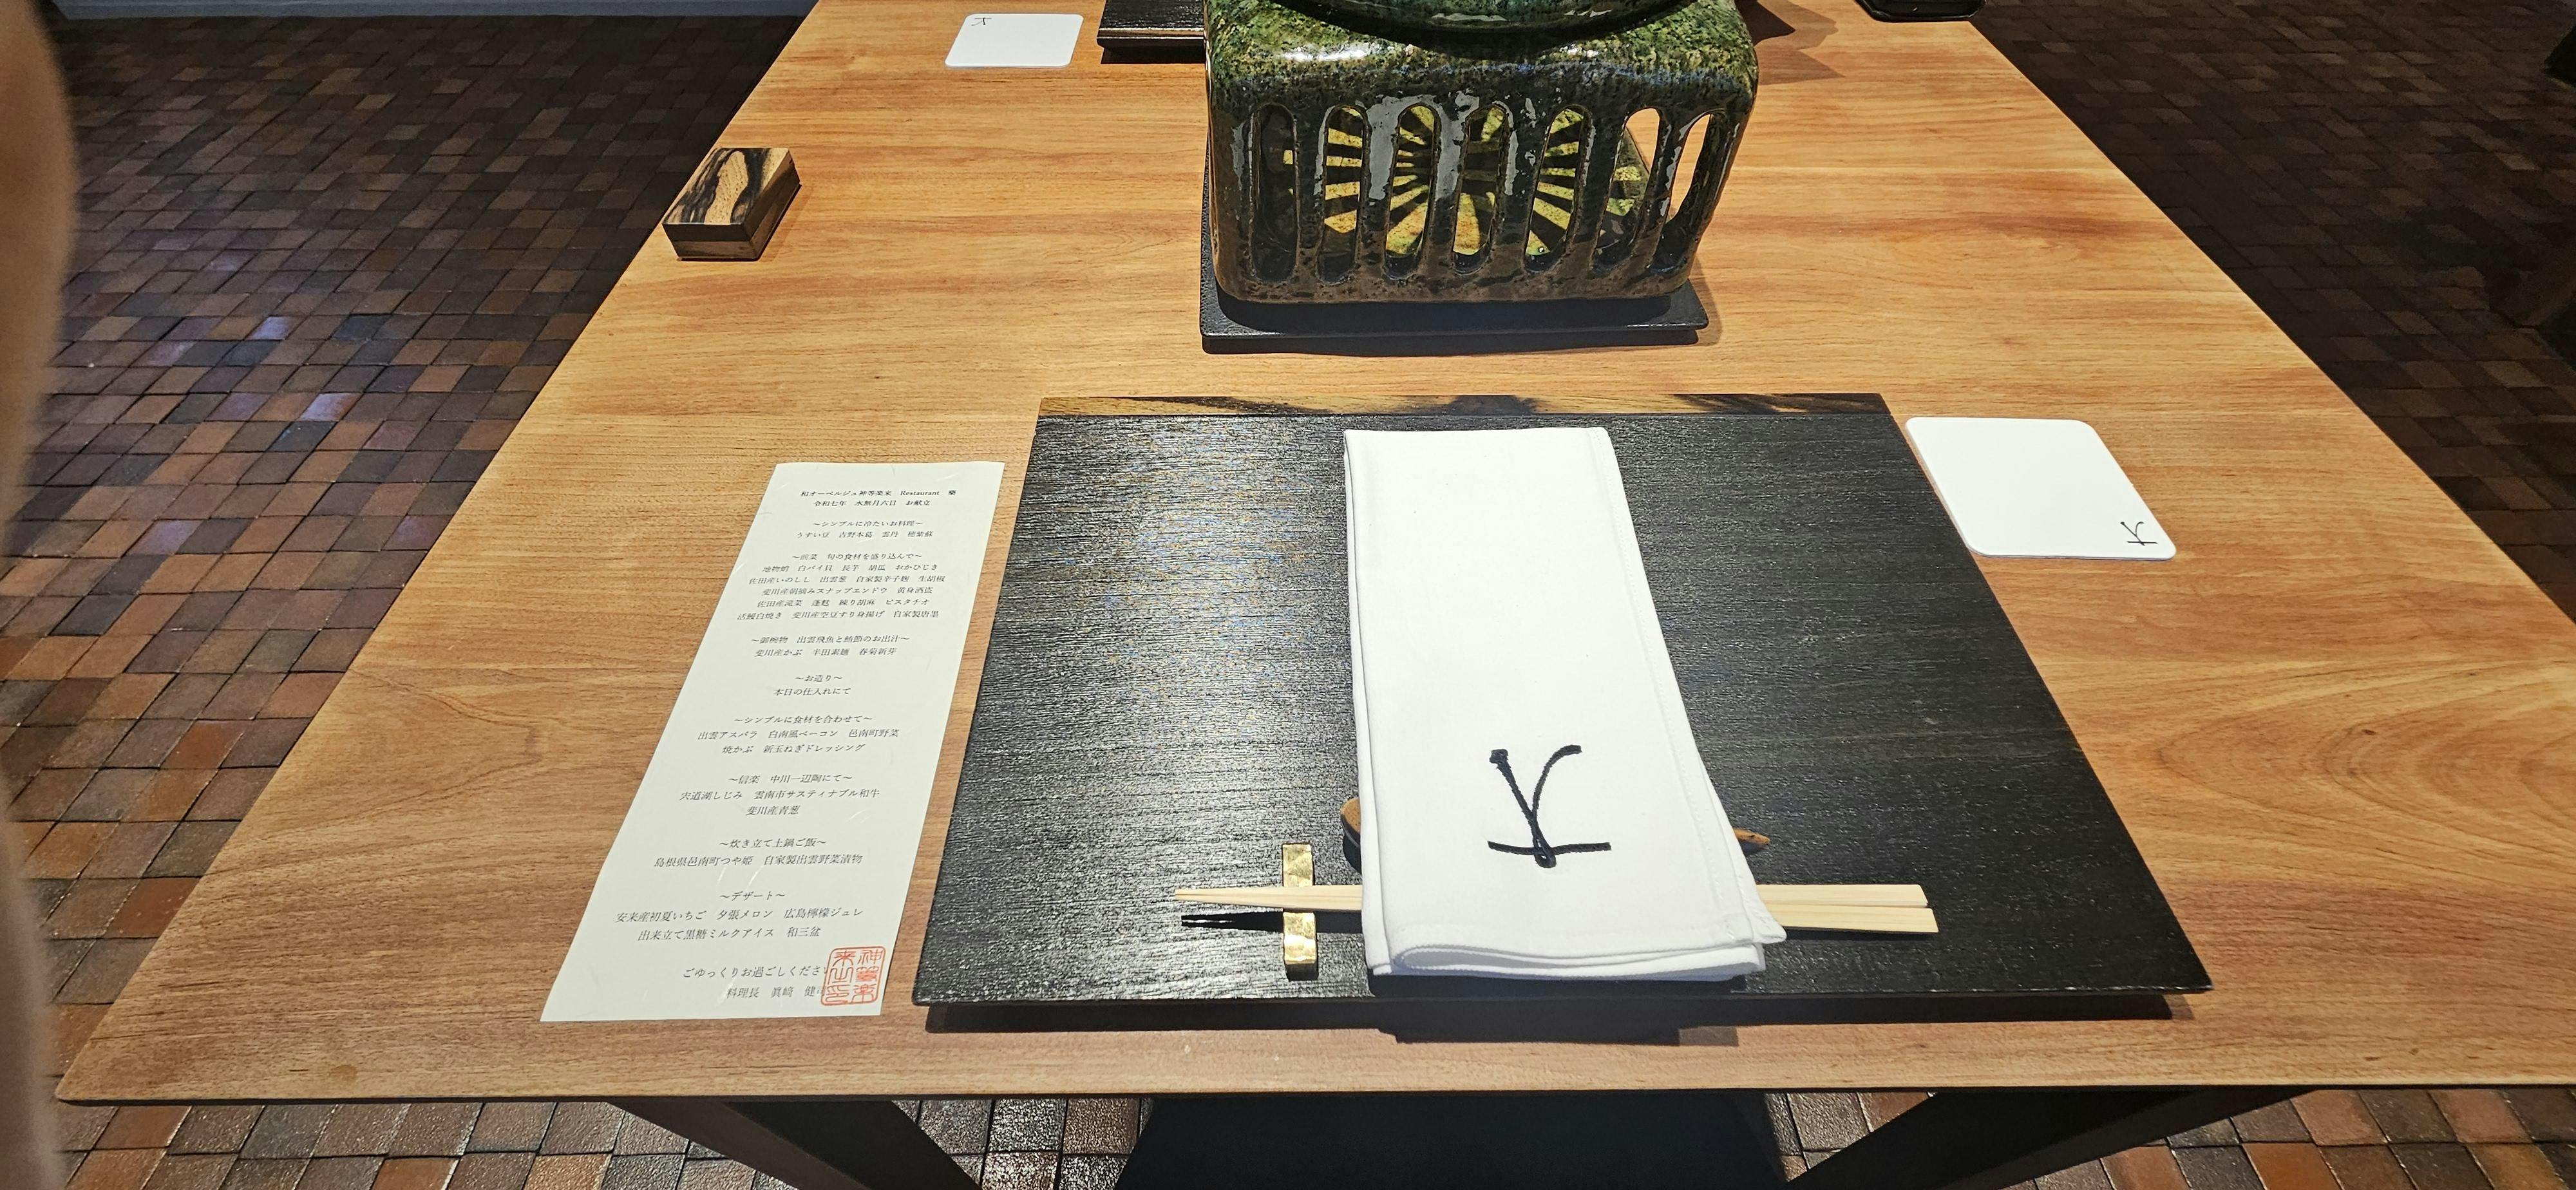 和オーベルジュ神等楽来 Restaurant 樂
令和七年 水無月六日 お献立
～シンプルに冷たいお料理～
うすい豆 吉野本葛 雲丹 穂紫蘇
～前菜 旬の食材を盛り込んで～
地物蛸 白バイ貝 長芋 胡瓜 おかひじき
佐田産いのしし 出雲葱 自家製辛子麺 生胡椒
斐川産朝摘みスナップエンドウ 黄身酒盗
佐田産滝菜 蓬麩 練り胡麻 ピスタチオ
活鰻白焼き 斐川産空豆すり身揚げ 自家製唐墨
～御椀物 出雲飛魚と鯖節のお出汁～
斐川産かぶ 半田素麺 春菊新芽
～お造り～
本日の仕入れにて
～シンプルに食材を合わせて～
出雲アスパラ 白南風ベーコン 邑南町野菜
焼かぶ 新玉ねぎドレッシング
～信楽 中川一辺陶にて～
宍道湖しじみ 雲南市サスティナブル和牛
斐川産青葱
～炊き立て土鍋ご飯～
島根県邑南町つや姫 自家製出雲野菜漬物
～デザート～
安来産初夏いちご 夕張メロン 広島檸檬ジュレ
出来立て黒糖ミルクアイス 和三盆
ごゆっくりお過ごしくださ
料理長 眞﨑 健
神等楽
来山印